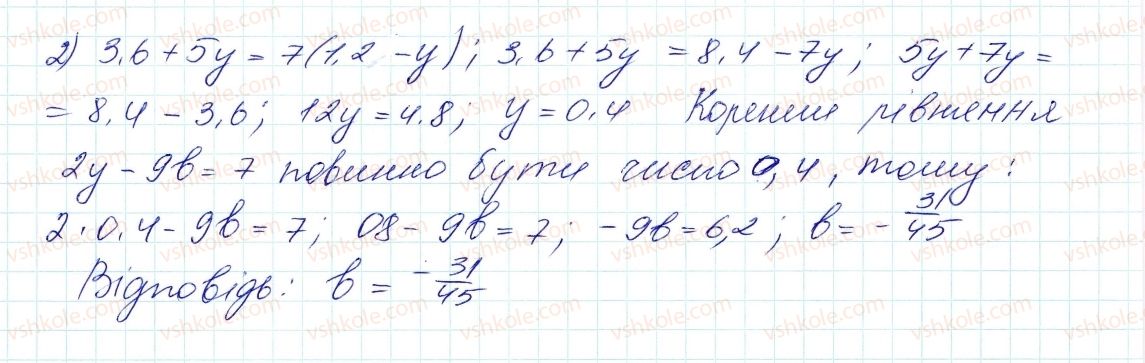 2) 3,6 + 5y = 7(1,2 - y); 3,6 + 5y = 8,4 - 7y; 5y + 7y =
= 8,4 - 3,6; 12y = 4,8; y = 0,4 Коренем рівняння
2y - 9b = 7 повинно бути число 0,4, тому:
2 · 0,4 - 9b = 7; 08 - 9b = 7; -9b = 6,2; b = -31/45
Відповідь: b = -31/45